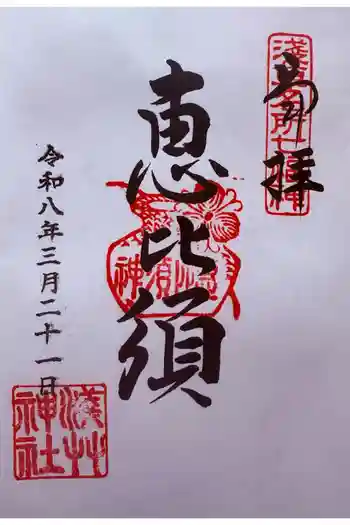 奉拝
浅草名所七福神
恵比須
恵比須神
令和八年三月二十一日
浅草神社